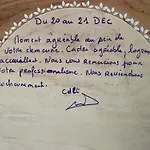 Du 20 au 21 DEC
Moment agréable au sein de
votre demeure. Cadre agréable, logement
accueillant. Nous vous remercions pour
votre professionnalisme. Nous reviendrons